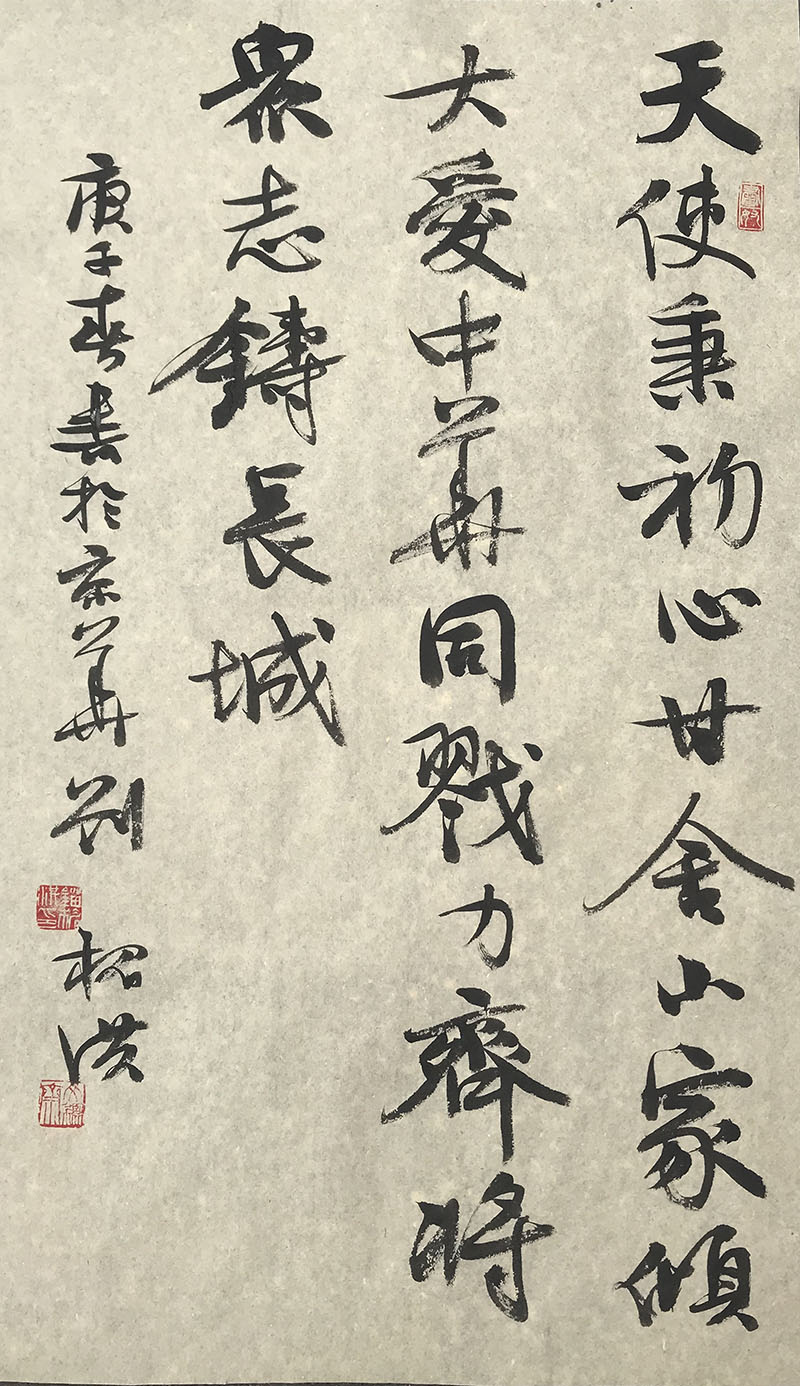 天使秉初心甘舍小家傾
大愛中華同戮力齊將
眾志鑄長城
庚子春書於京華劉洪